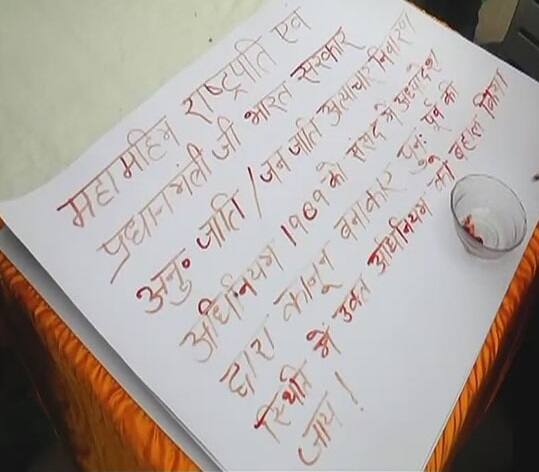 महामहिम राष्ट्रपति एवं
प्रधानमंत्री जी भारत सरकार
अनु० जाति / जन जाति अत्याचार निवारण
अधिनियम 1989 को संसद में अध्यादेश
द्वारा कानून बनाकर पुनः पूर्व की
स्थिति में उक्त अधिनियम को बहाल किया
जाय !